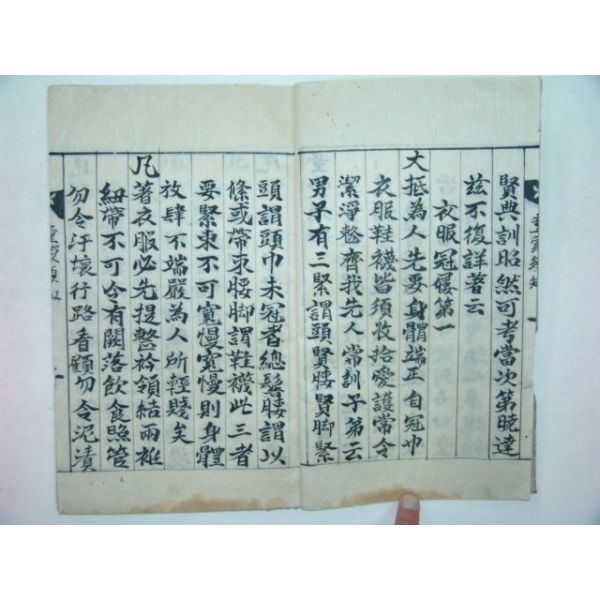 賢典訓昭然可考當次第曉達
茲不復詳著云
衣服冠屨第一
大抵為人先要身體端正自冠巾
衣服鞋襪皆須收拾愛護常令
潔淨整齊我先人常訓子第云
男子有三緊謂頭賢腰賢脚緊
頭謂頭巾未冠者總髻腰謂以
條或帶束腰脚謂鞋襪此三者
要緊束不可寬慢寬慢則身體
放肆不端嚴為人所輕賤矣
凡著衣服必先提整衿領結兩衽
紐帶不可令有闕落飲食照管
勿令汙壞行路看顧勿令泥漬